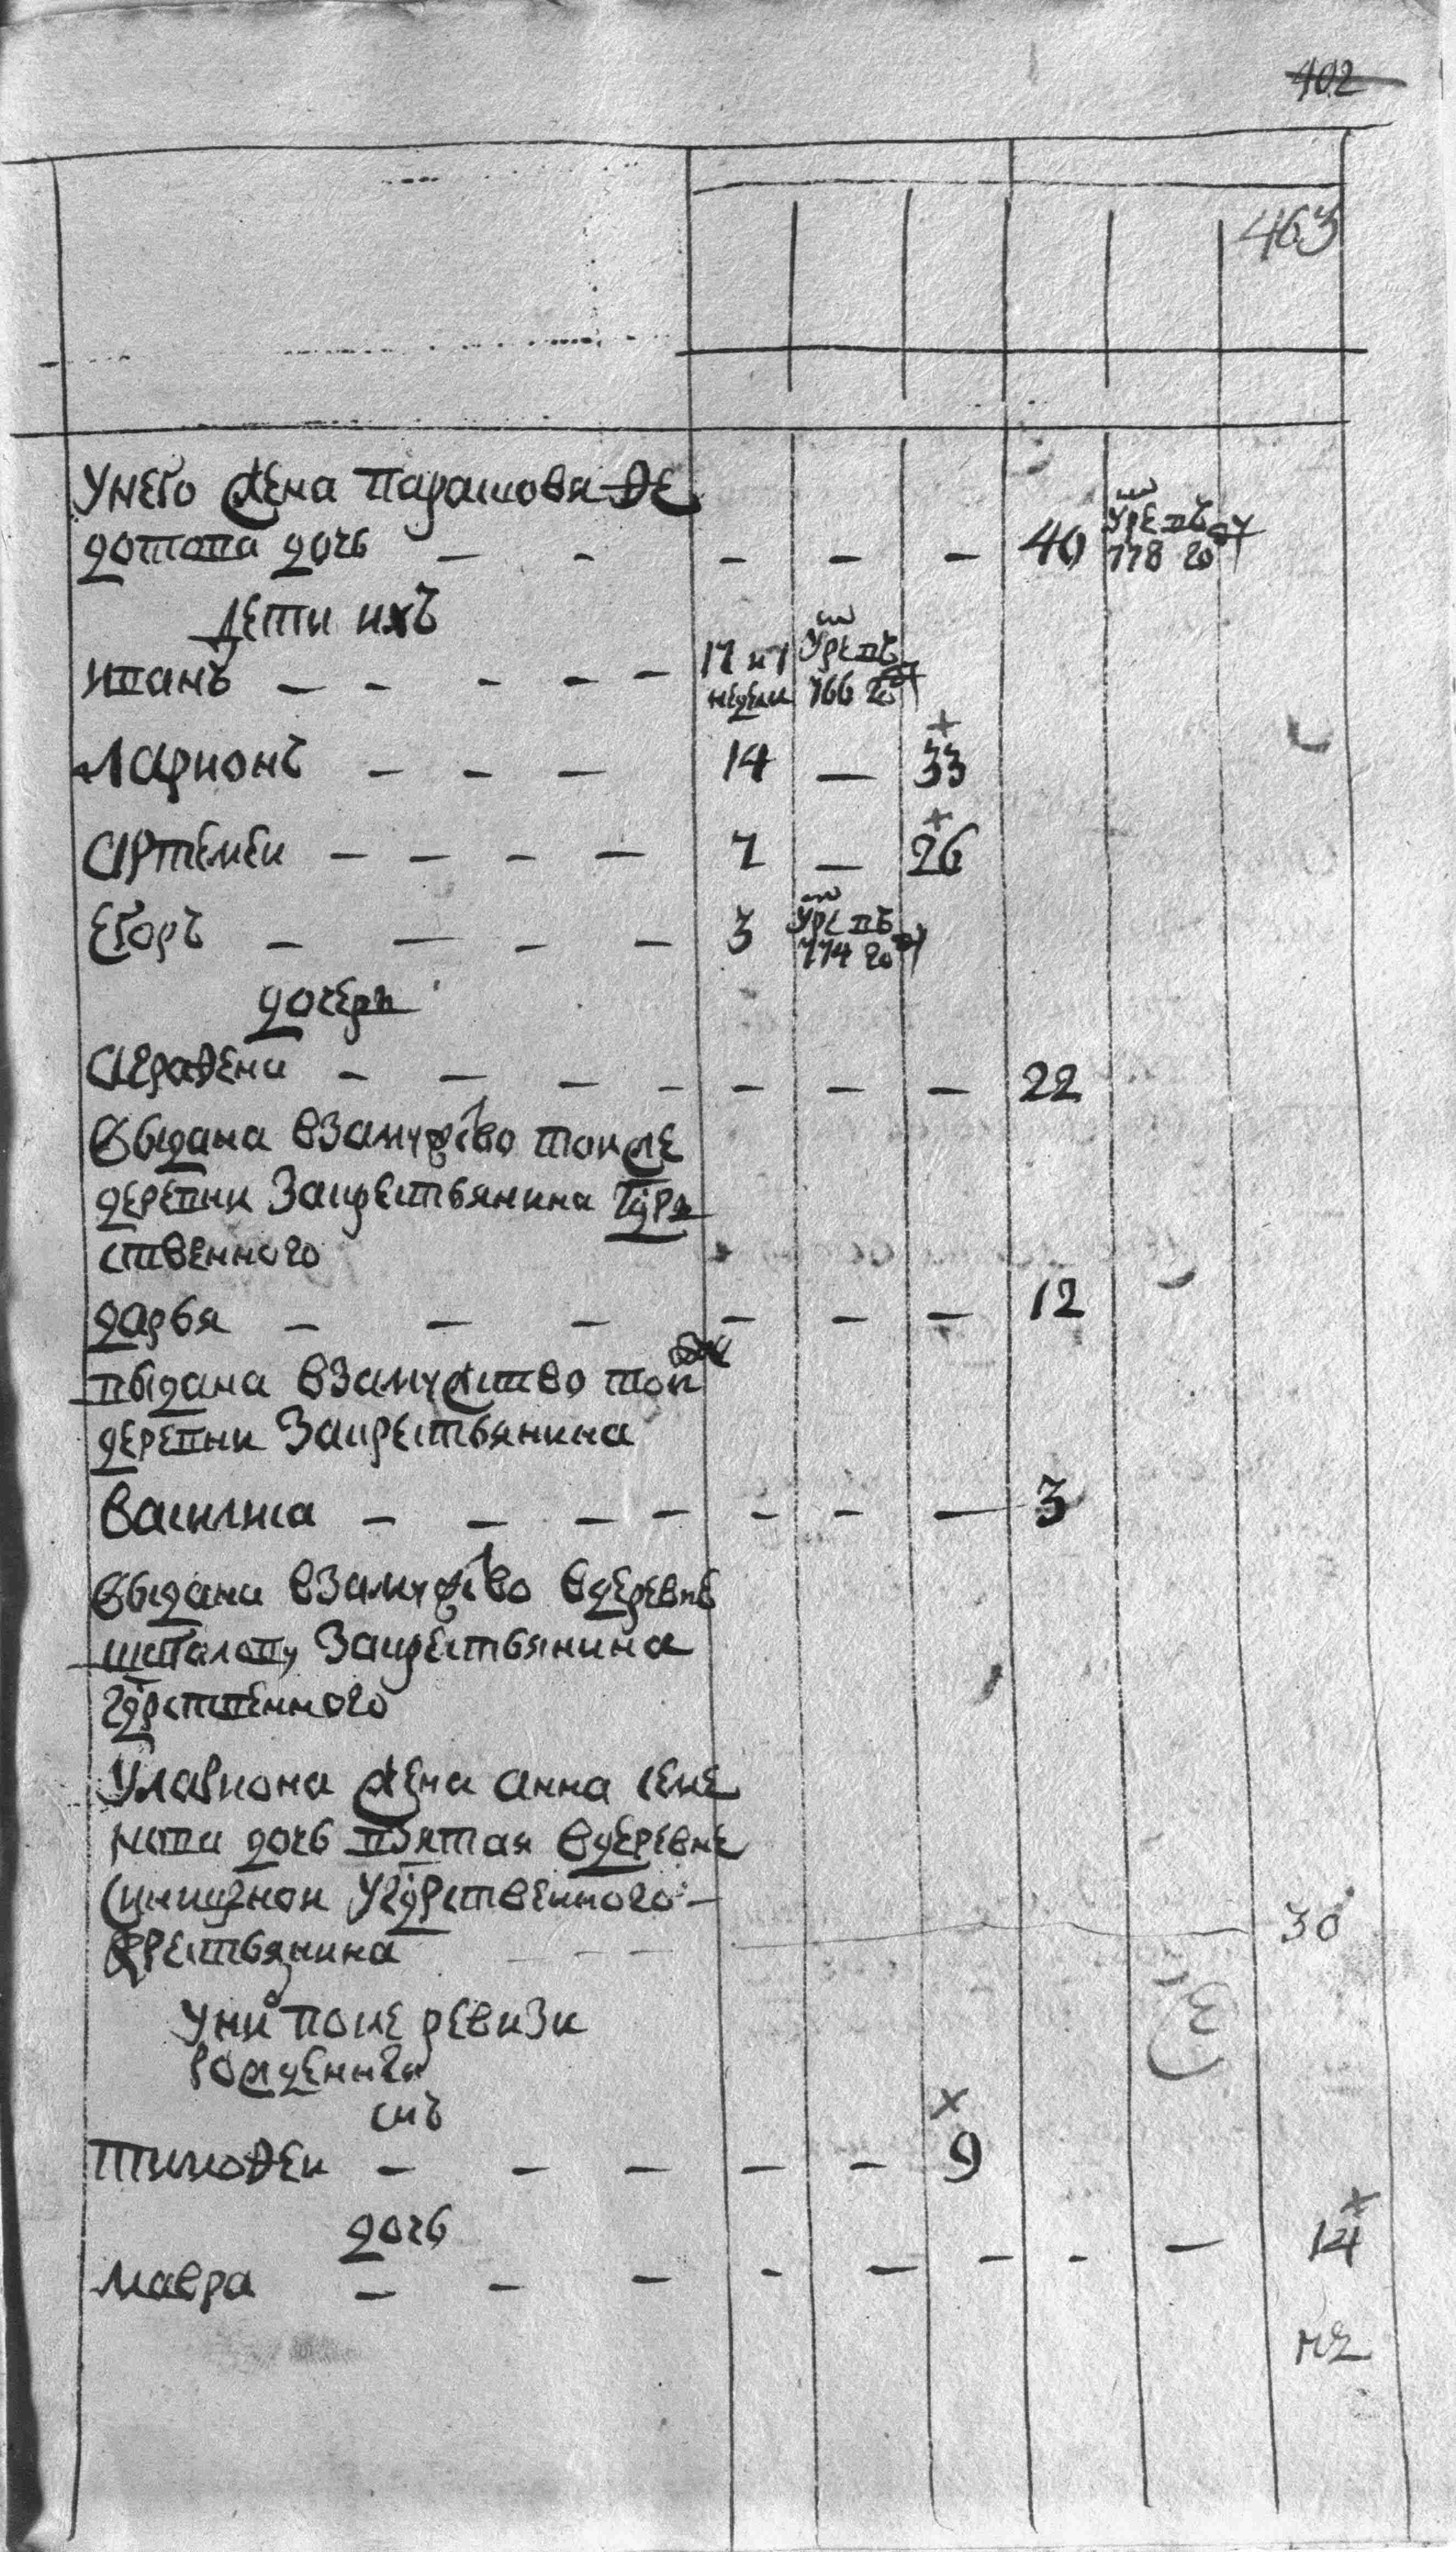 402
463
У него жена парасковя фе
дотова дочь — — — — — 40 умре въ 778 го
дети ихъ
иванъ — — — — — 17 и 1 недели умре въ 766 го
Ларионъ — — — 14 — 33
Артемеи — — — — 7 — 26
Егоръ — — — — 3 умре въ 774 го
дочери
Аграфена — — — — — — — 22
выдана взамужство тои же
деревни За крестьянина гдрс
ственного
дарья — — — — — — 12
выдана взамужство тои
деревни За крестьянина
василиса — — — — — — — 3
выдана взамужство в деревне
За крестьянина
гдрственного
У лариона жена анна семе
нова дочь взятая в деревне
у гдрственного —
крестьянина — — — 30
У них после ревизи
рожденныя
снъ
тимофеи — — — — — 9
дочь
мавра — — — — — — — — 14